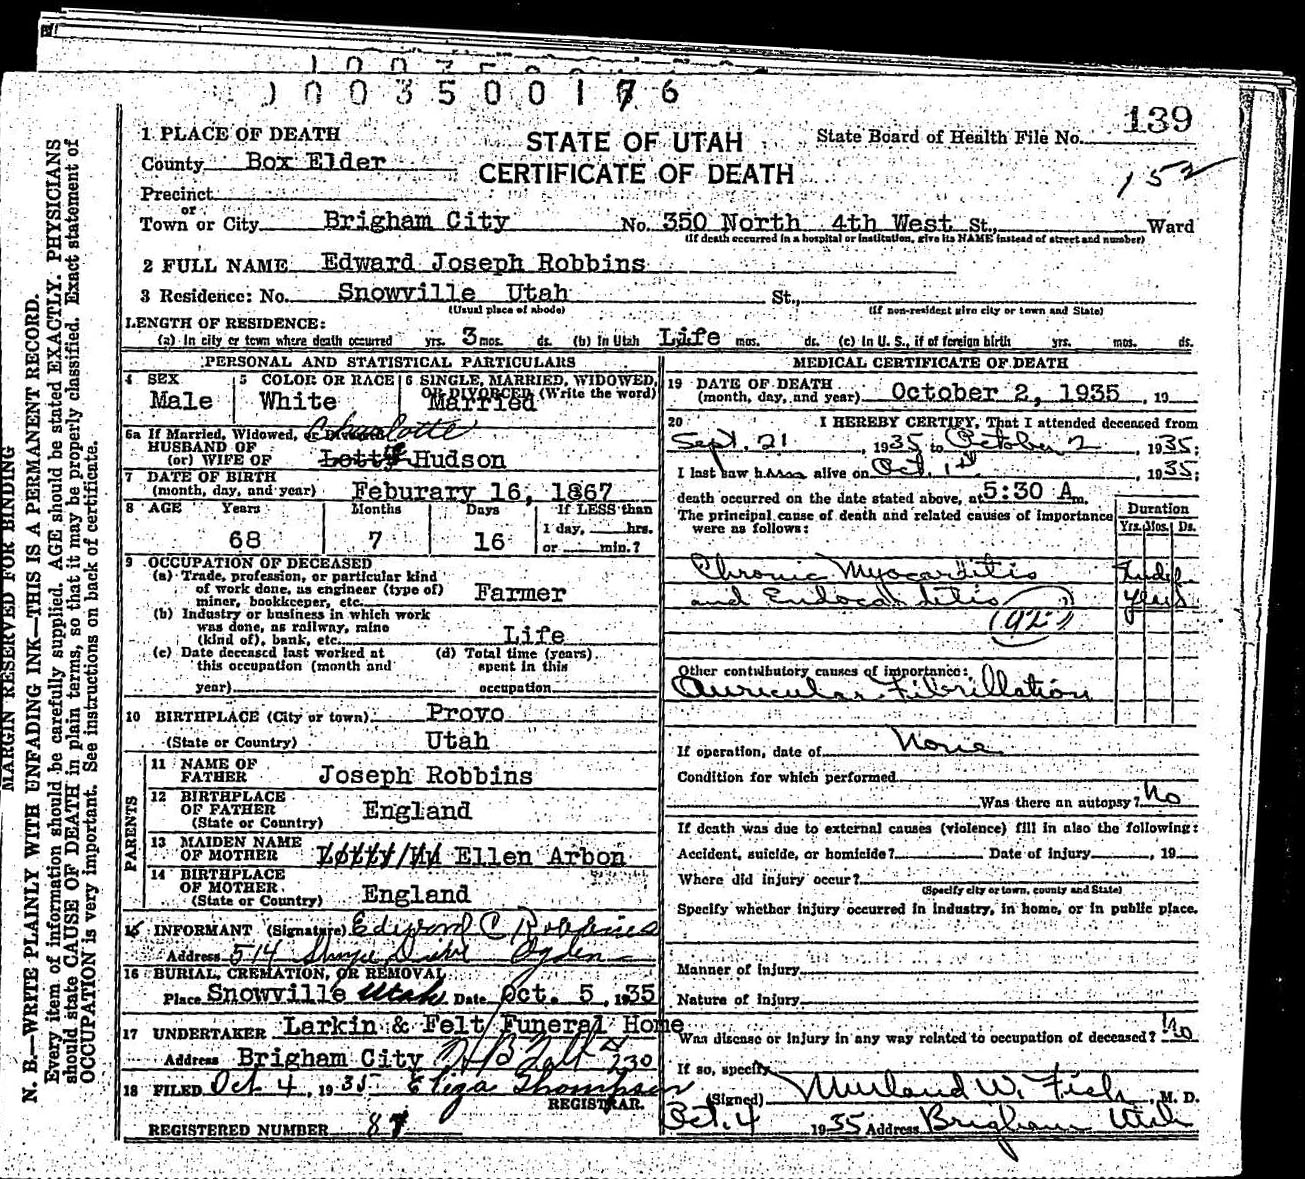 1003500176
139
1 PLACE OF DEATH
STATE OF UTAH
State Board of Health File No.
County Box Elder
CERTIFICATE OF DEATH
152
Precinct
or
Town or City Brigham City No. 350 North 4th West St., Ward
(If death occurred in a hospital or institution, give its NAME instead of street and number)
2 FULL NAME Edward Joseph Robbins
3 Residence: No. Snowville Utah St.,
(Usual place of abode) (If non-resident give city or town and State)
LENGTH OF RESIDENCE:
(a) In city or town where death occurred yrs. 3 mos. ds. (b) In Utah Life mos. ds. (c) In U. S., if of foreign birth yrs. mos. ds.
PERSONAL AND STATISTICAL PARTICULARS
4 SEX 5 COLOR OR RACE 6 SINGLE, MARRIED, WIDOWED,
OR DIVORCED (Write the word)
Male White Married
6a If Married, Widowed, or Divorced Charlotte
HUSBAND OF
(or) WIFE OF Hudson
7 DATE OF BIRTH
(month, day, and year) Feburary 16, 1867
8 AGE Years Months Days If LESS than
1 day, hrs.
68 7 16 or min.?
9 OCCUPATION OF DECEASED
(a) Trade, profession, or particular kind
of work done, as engineer (type of)
miner, bookkeeper, etc. Farmer
(b) Industry or business in which work
was done, as railway, mine
(kind of), bank, etc. Life
(c) Date deceased last worked at (d) Total time (years)
this occupation (month and spent in this
year) occupation
10 BIRTHPLACE (City or town) Provo
(State or Country) Utah
PARENTS
11 NAME OF
FATHER Joseph Robbins
12 BIRTHPLACE
OF FATHER England
(State or Country)
13 MAIDEN NAME
OF MOTHER Ellen Arbon
14 BIRTHPLACE
OF MOTHER
(State or Country) England
15 INFORMANT (Signature) Edward C Robbins
Address 514 Ogden
16 BURIAL, CREMATION, OR REMOVAL
Place Snowville Utah Date Oct. 5, 1935
17 UNDERTAKER Larkin & Felt Funeral Home
Address Brigham City H B Felt 230
18 FILED Oct 4, 1935 Eliza Thompson
REGISTRAR.
REGISTERED NUMBER 87
MEDICAL CERTIFICATE OF DEATH
19 DATE OF DEATH
(month, day, and year) October 2, 1935, 19
20 I HEREBY CERTIFY, That I attended deceased from
Sept. 21, 1935 to October 2, 1935;
I last saw h alive on Oct. 1st, 1935;
death occurred on the date stated above, at 5:30 A m.
The principal cause of death and related causes of importance
were as follows:
Duration
Yrs. Mos. Ds.
Chronic Myocarditis Indef
and Endocarditis years
(92)
Other contributory causes of importance:
Auricular Fibrillation
If operation, date of None
Condition for which performed
Was there an autopsy? No
If death was due to external causes (violence) fill in also the following:
Accident, suicide, or homicide? Date of injury, 19
Where did injury occur?
(Specify city or town, county and State)
Specify whether injury occurred in industry, in home, or in public place.
Manner of injury
Nature of injury
Was disease or injury in any way related to occupation of deceased? No
If so, specify
(Signed) W. M. D.
Oct. 4 1935 Address Brigham Utah
MARGIN RESERVED FOR BINDING
N. B.—WRITE PLAINLY WITH UNFADING INK—THIS IS A PERMANENT RECORD.
Every item of information should be carefully supplied. AGE should be stated EXACTLY. PHYSICIANS
should state CAUSE OF DEATH in plain terms, so that it may be properly classified. Exact statement of
OCCUPATION is very important. See instructions on back of certificate.